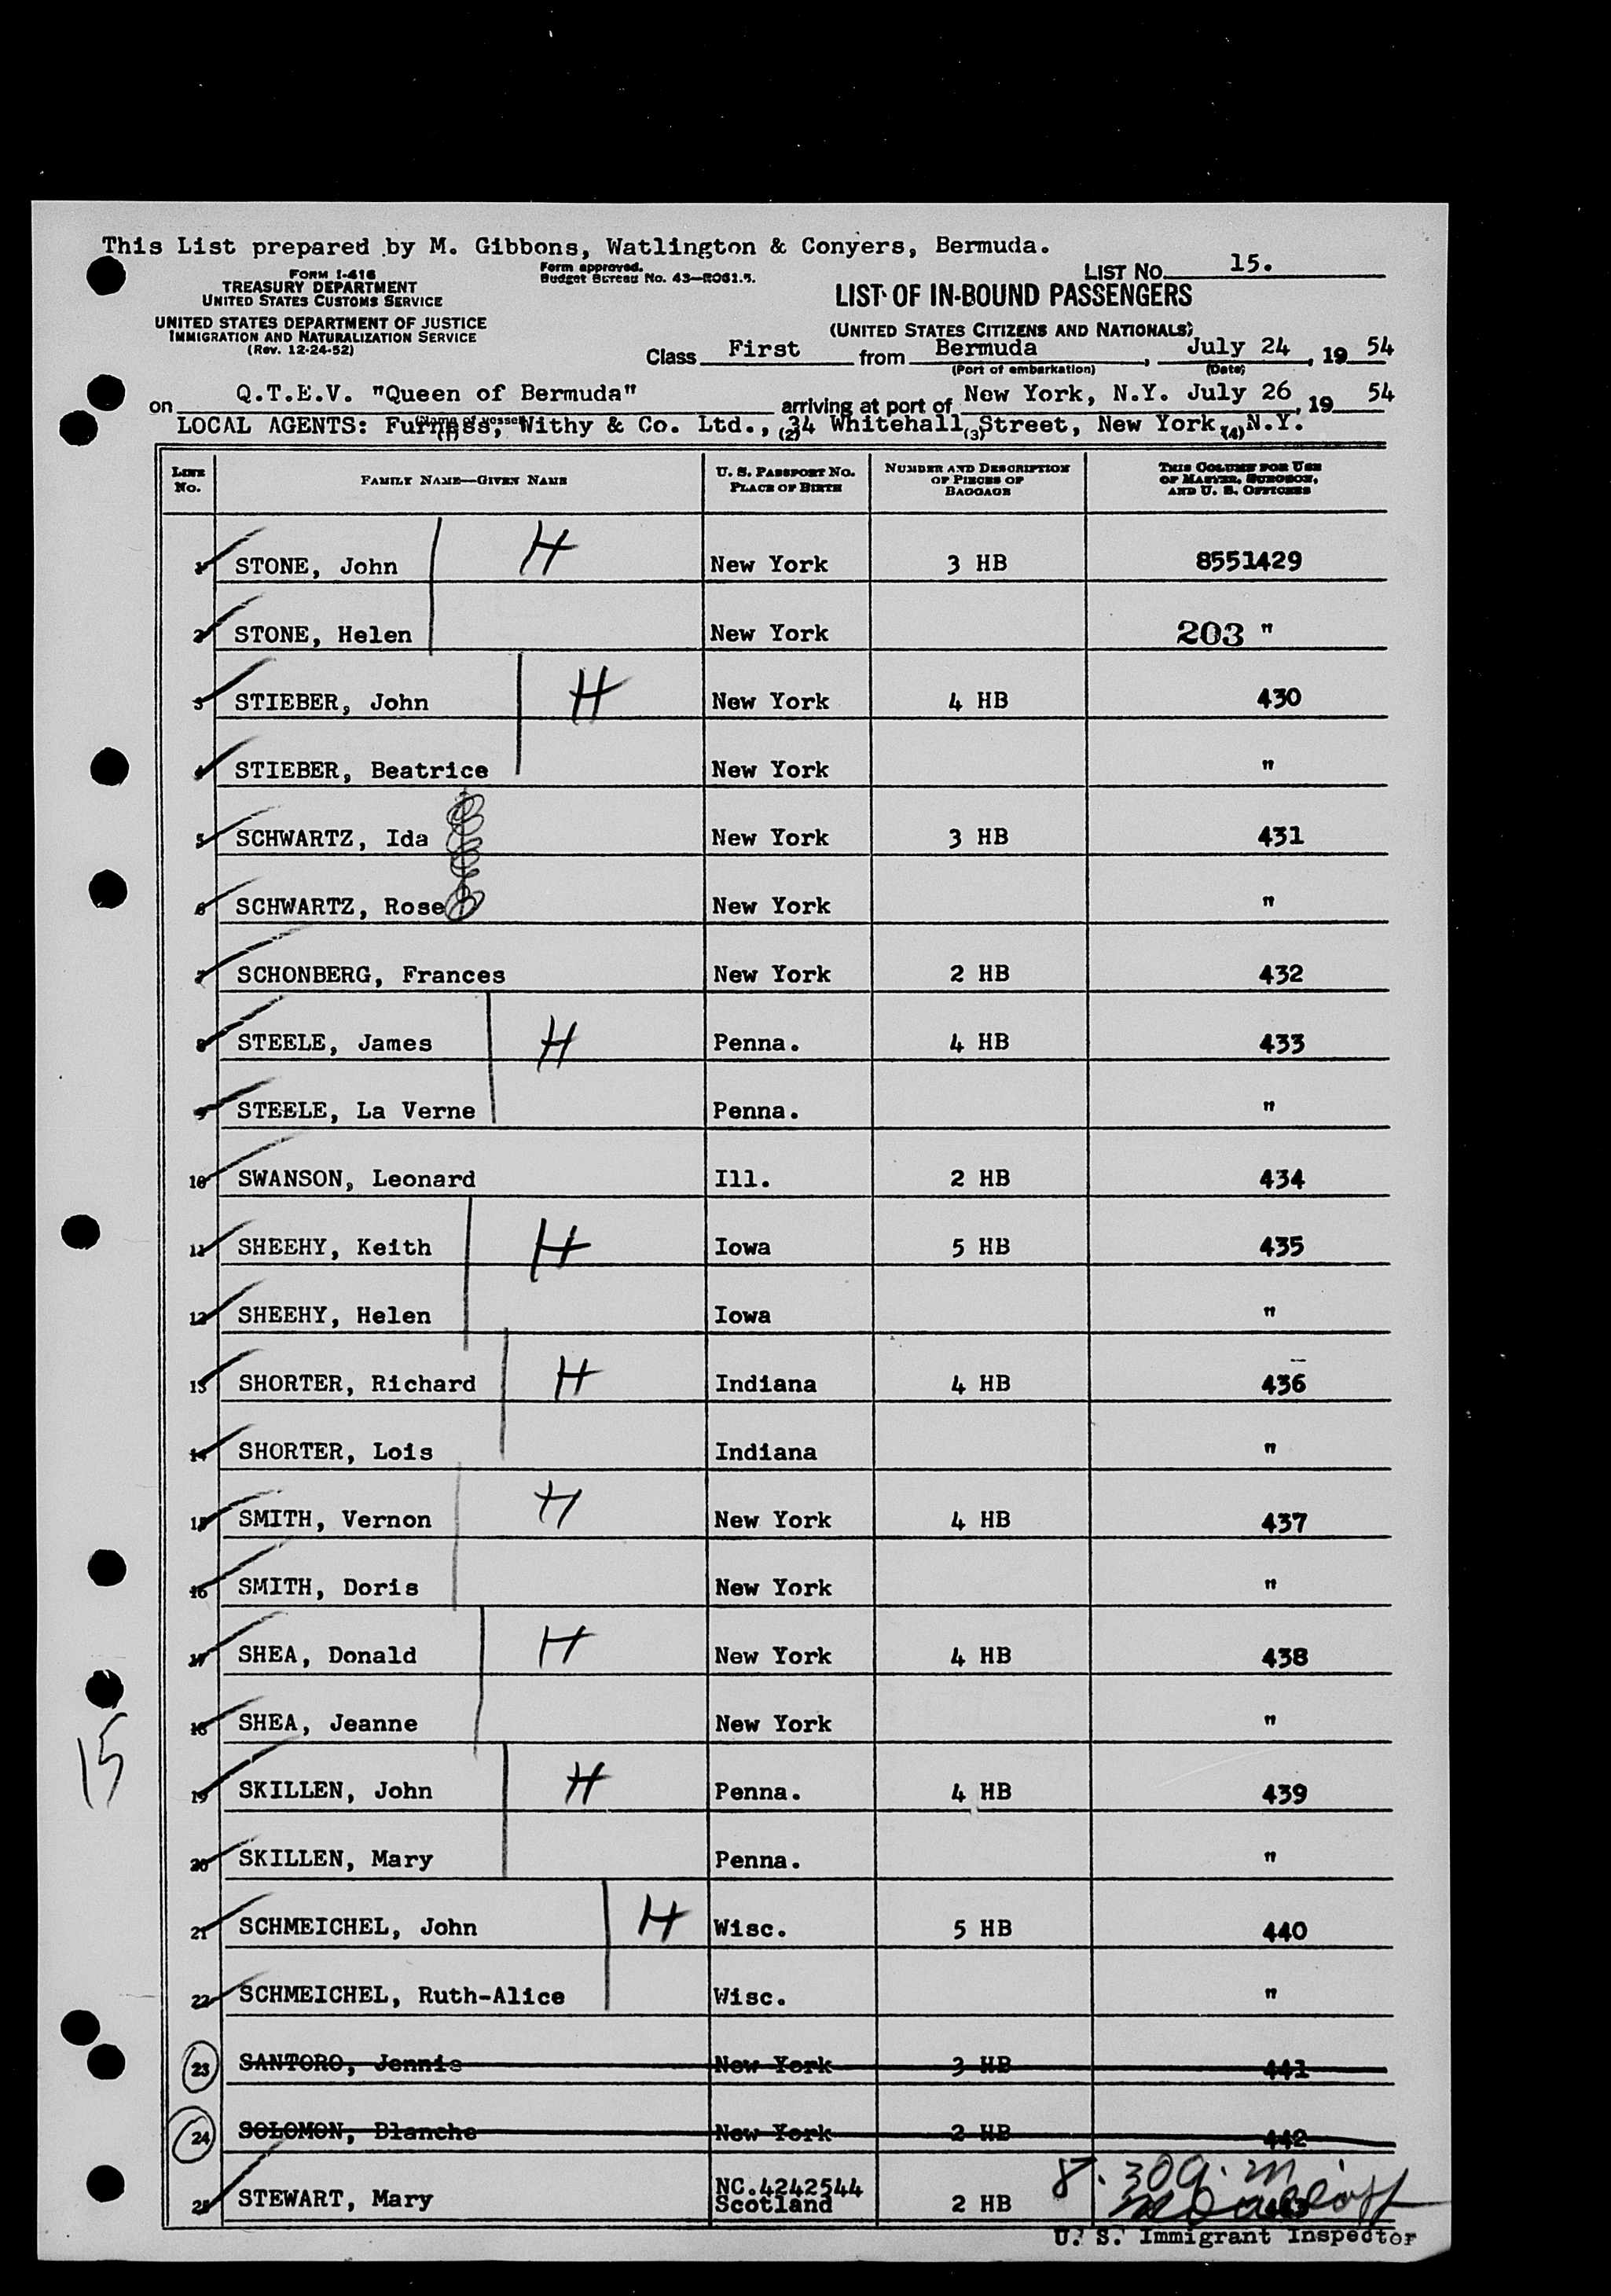 This List prepared by M. Gibbons, Watlington & Conyers, Bermuda.
FORM I-416
TREASURY DEPARTMENT
UNITED STATES CUSTOMS SERVICE
UNITED STATES DEPARTMENT OF JUSTICE
IMMIGRATION AND NATURALIZATION SERVICE
(Rev. 12-24-52)
Form approved.
Budget Bureau No. 43—R061.5.
LIST NO. 15.
LIST OF IN-BOUND PASSENGERS
(UNITED STATES CITIZENS AND NATIONALS)
Class First from Bermuda, July 24, 19 54
(Port of embarkation) (Date)
on Q.T.E.V. "Queen of Bermuda" arriving at port of New York, N.Y. July 26, 19 54
LOCAL AGENTS: Furness, Withy & Co. Ltd., 34 Whitehall Street, New York, N.Y.
(1) (2) (3) (4)
LINE NO. FAMILY NAME—GIVEN NAME U. S. PASSPORT NO. PLACE OF BIRTH NUMBER AND DESCRIPTION OF PIECES OF BAGGAGE THIS COLUMN FOR USE OF MASTER, SURGEON, AND U. S. OFFICERS
1 STONE, John H New York 3 HB 8551429
2 STONE, Helen New York 203 "
3 STIEBER, John H New York 4 HB 430
4 STIEBER, Beatrice New York "
5 SCHWARTZ, Ida New York 3 HB 431
6 SCHWARTZ, Rose New York "
7 SCHONBERG, Frances New York 2 HB 432
8 STEELE, James H Penna. 4 HB 433
9 STEELE, La Verne Penna. "
10 SWANSON, Leonard Ill. 2 HB 434
11 SHEEHY, Keith H Iowa 5 HB 435
12 SHEEHY, Helen Iowa "
13 SHORTER, Richard H Indiana 4 HB 436
14 SHORTER, Lois Indiana "
15 SMITH, Vernon H New York 4 HB 437
16 SMITH, Doris New York "
17 SHEA, Donald H New York 4 HB 438
18 SHEA, Jeanne New York "
15
19 SKILLEN, John H Penna. 4 HB 439
20 SKILLEN, Mary Penna. "
21 SCHMEICHEL, John H Wisc. 5 HB 440
22 SCHMEICHEL, Ruth-Alice Wisc. "
23 SANTORO, Jennie New York 3 HB 441
24 SOLOMON, Blanche New York 2 HB 442
8.30 a.m
25 STEWART, Mary NC.4242544 Scotland 2 HB 443
U. S. Immigrant Inspector